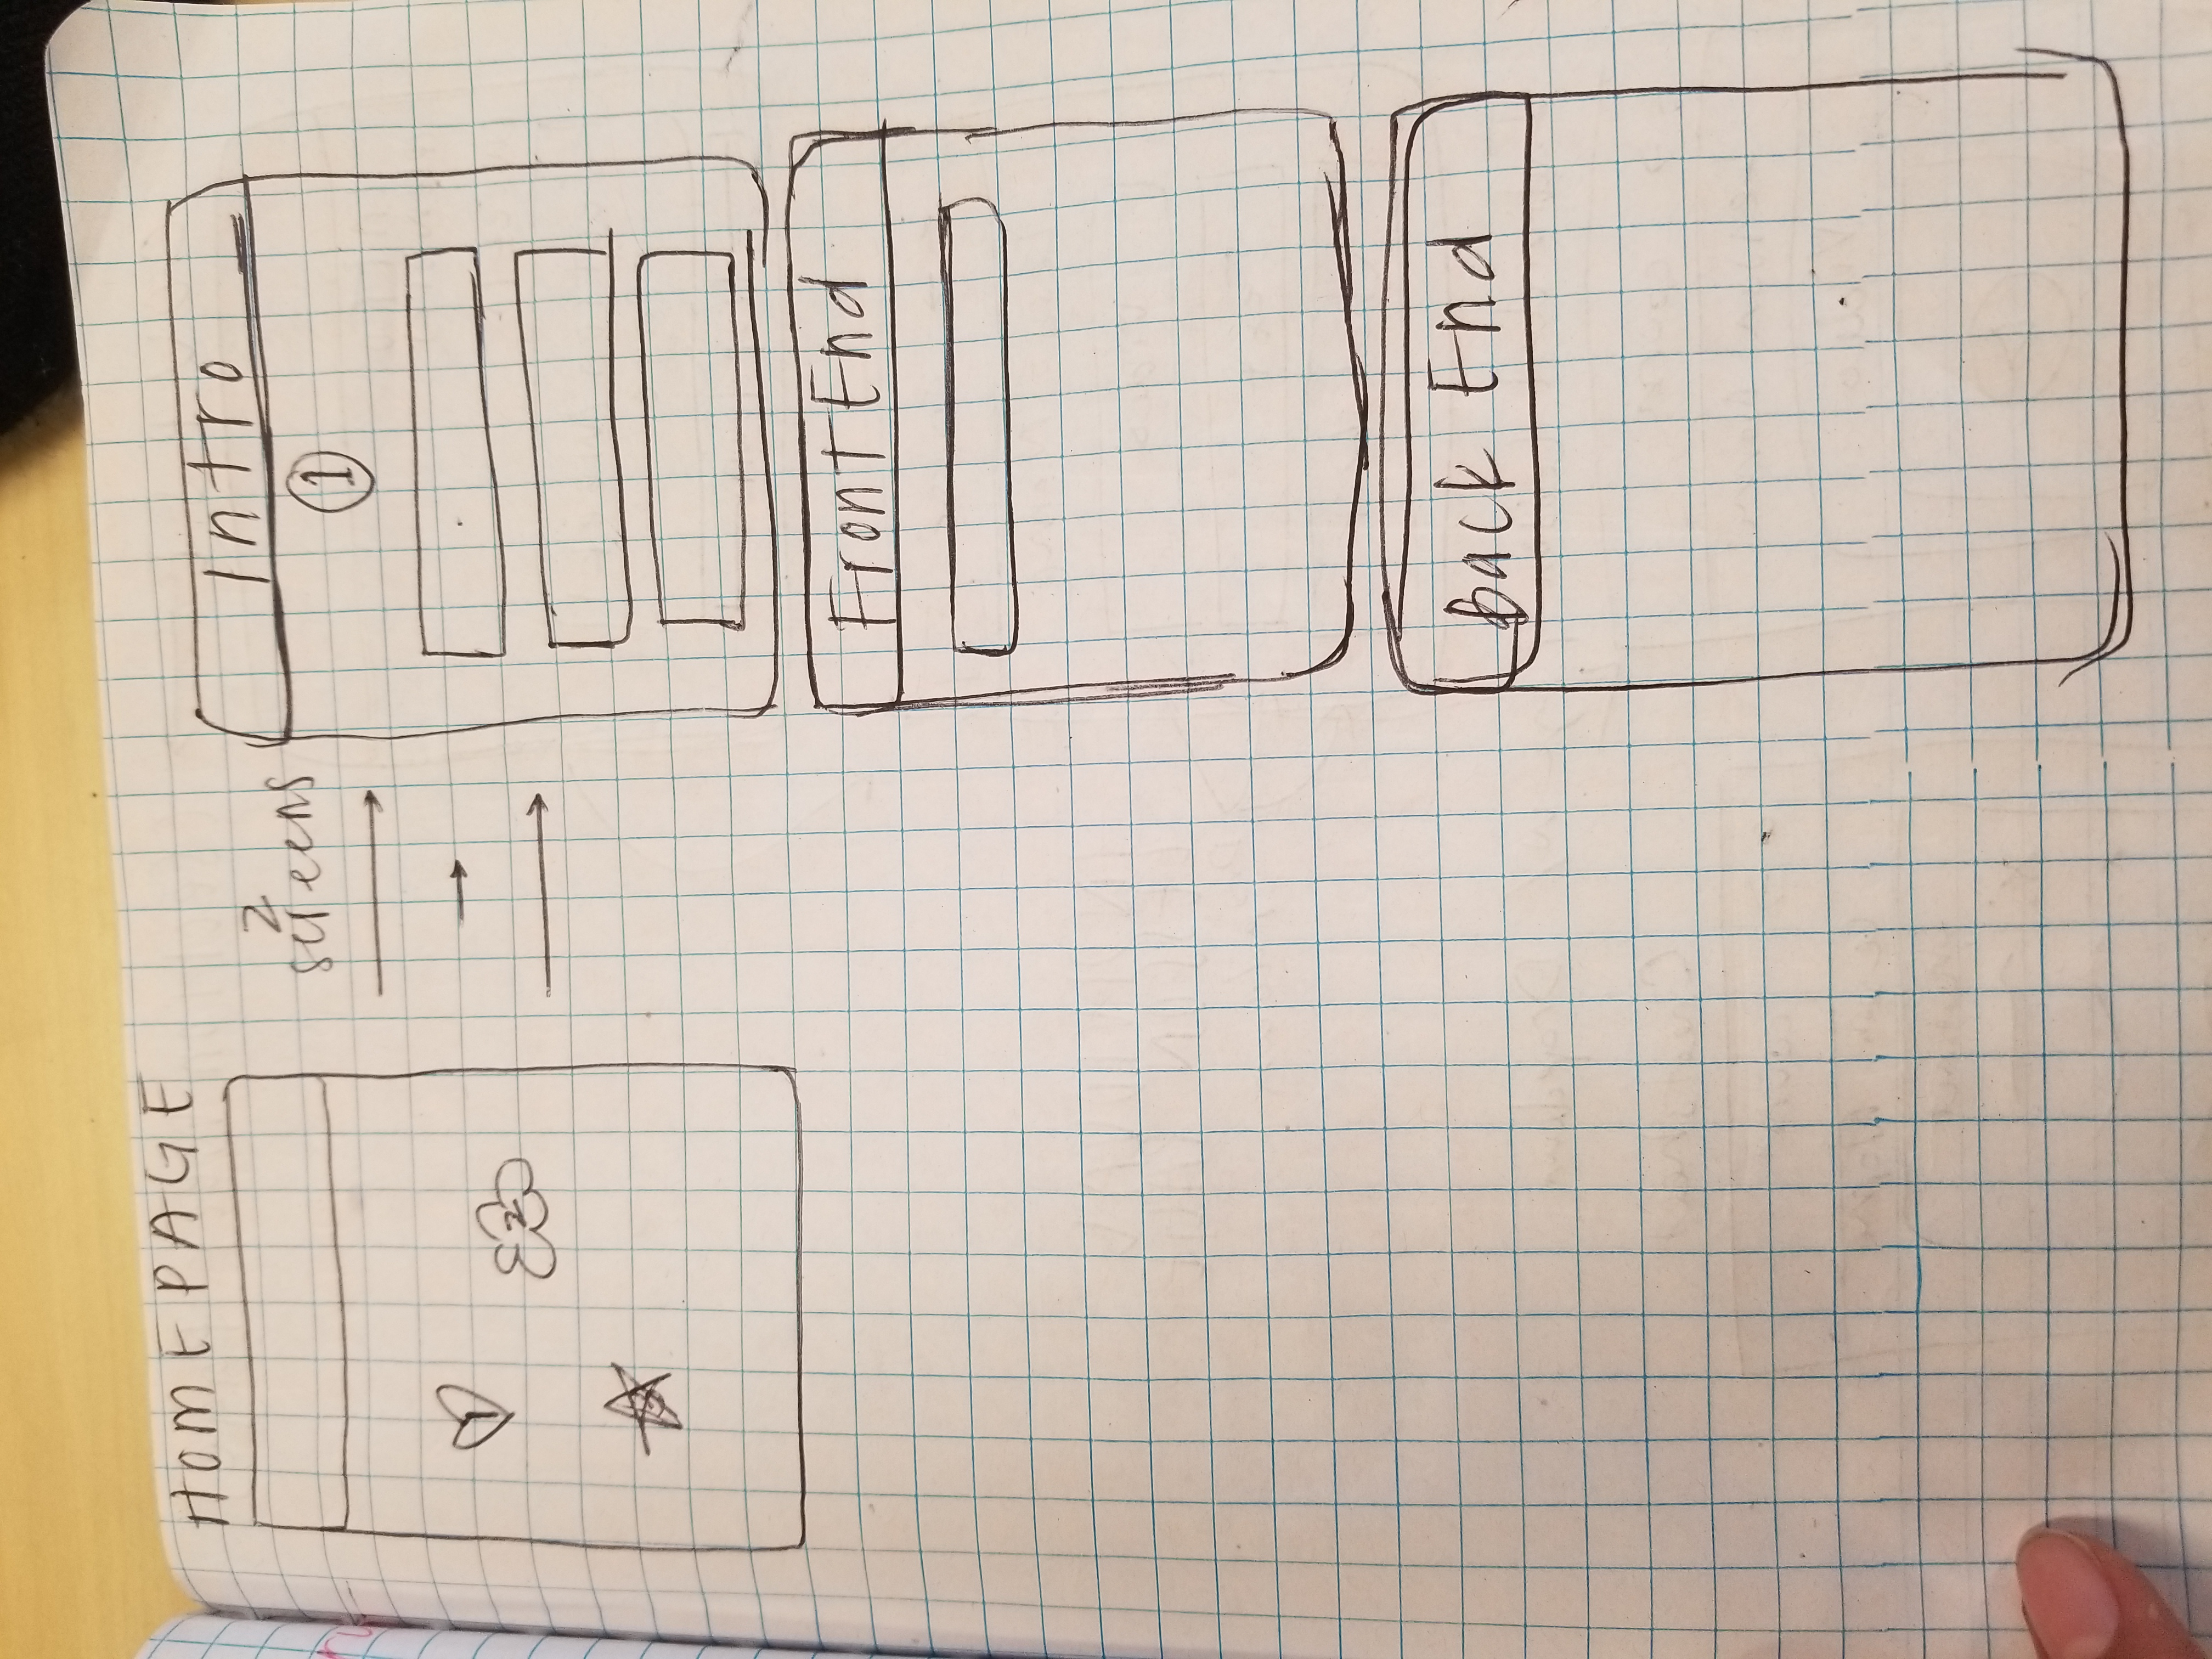 HOMEPAGE
2
screens
1
2
Intro
1
Front End
Back End